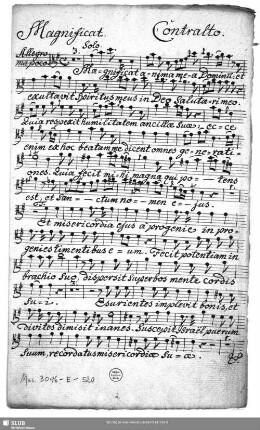 Magnificat. Contralto.
Allegro Solo.
ma poco
Magnificat anima mea Dominu. et
exultavit Spiritus meus in Deo Salutari meo.
Quia respexit humilitatem ancillæ Suæ, ec=ce
enim ex hoc beatam me dicent omnes ge-ne-rati-
ones. Quia fecit mi-hi magna qui po - - tens
est, et San= - ctum no - men e - jus.
Et misericordia ejus a progenie in pro
genies timentibus e=um. Fecit potentiam in
brachio Suo, dispersit Superbos mente cordis
Su=i. Esurientes implevit bonis, et
divites dimisit inanes. Suscepit Israel puerum
Suum, recordatus misericordiæ Su=æ.
Mus. 3046-E-520
SLUB